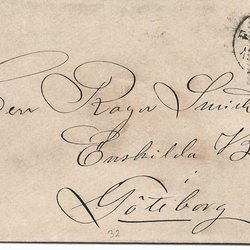 Herr Roger Smith
Enskilda B
i
Göteborg
32